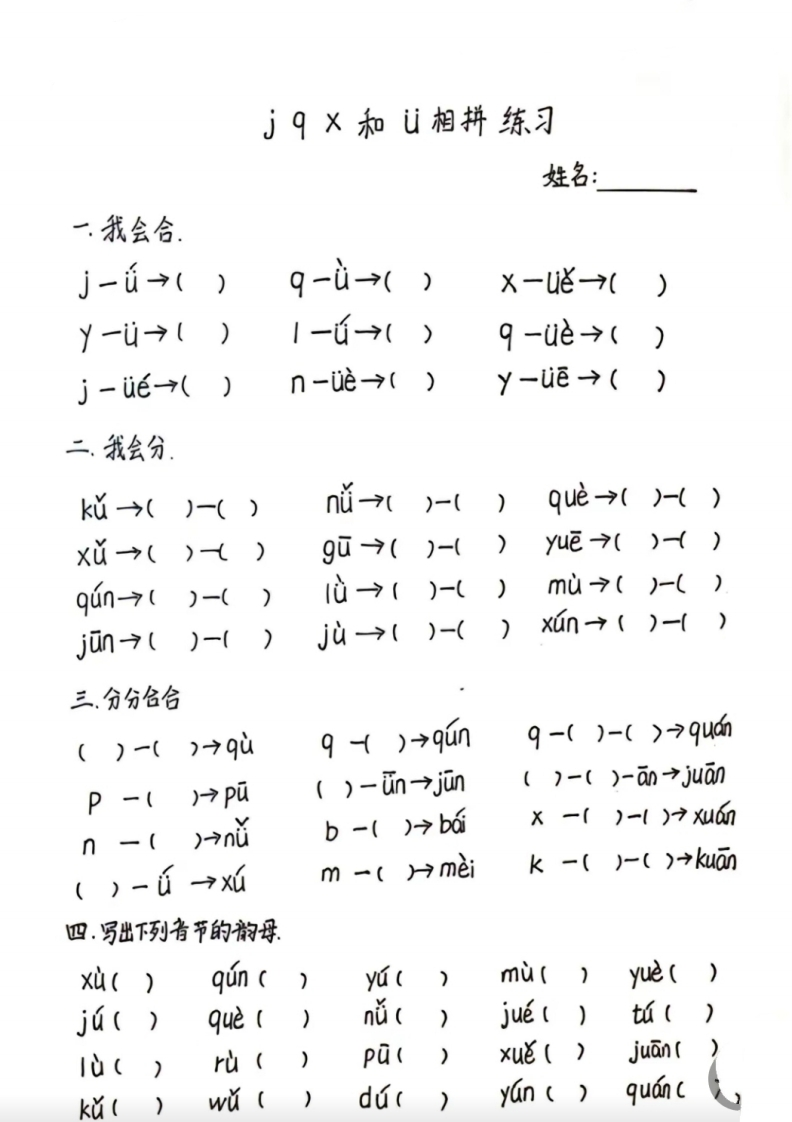 j q x 和 ü 相拼 练习
姓名:________
一.我会合.
j－ǘ→(  ) q－ǜ→(  ) x－üě→(  )
y－ü→(  ) l－ǘ→(  ) q－üè→(  )
j－üé→(  ) n－üè→(  ) y－üē→(  )
二.我会分.
kǔ→(  )－(  ) nǚ→(  )－(  ) què→(  )－(  )
xǔ→(  )－(  ) gū→(  )－(  ) yuē→(  )－(  )
qún→(  )－(  ) lǜ→(  )－(  ) mù→(  )－(  )
jūn→(  )－(  ) jù→(  )－(  ) xún→(  )－(  )
三.分分合合
(  )－(  )→qù q－(  )→qún q－(  )－(  )→quán
p－(  )→pū (  )－ǖn→jūn (  )－(  )－ān→juān
n－(  )→nǚ b－(  )→bái x－(  )－(  )→xuán
(  )－ǘ→xú m－(  )→mèi k－(  )－(  )→kuān
四.写出下列音节的韵母.
xù(  ) qún(  ) yú(  ) mù(  ) yuè(  )
jú(  ) què(  ) nǚ(  ) jué(  ) tú(  )
lù(  ) rù(  ) pū(  ) xuě(  ) juān(  )
kǔ(  ) wǔ(  ) dú(  ) yún(  ) quán(  )